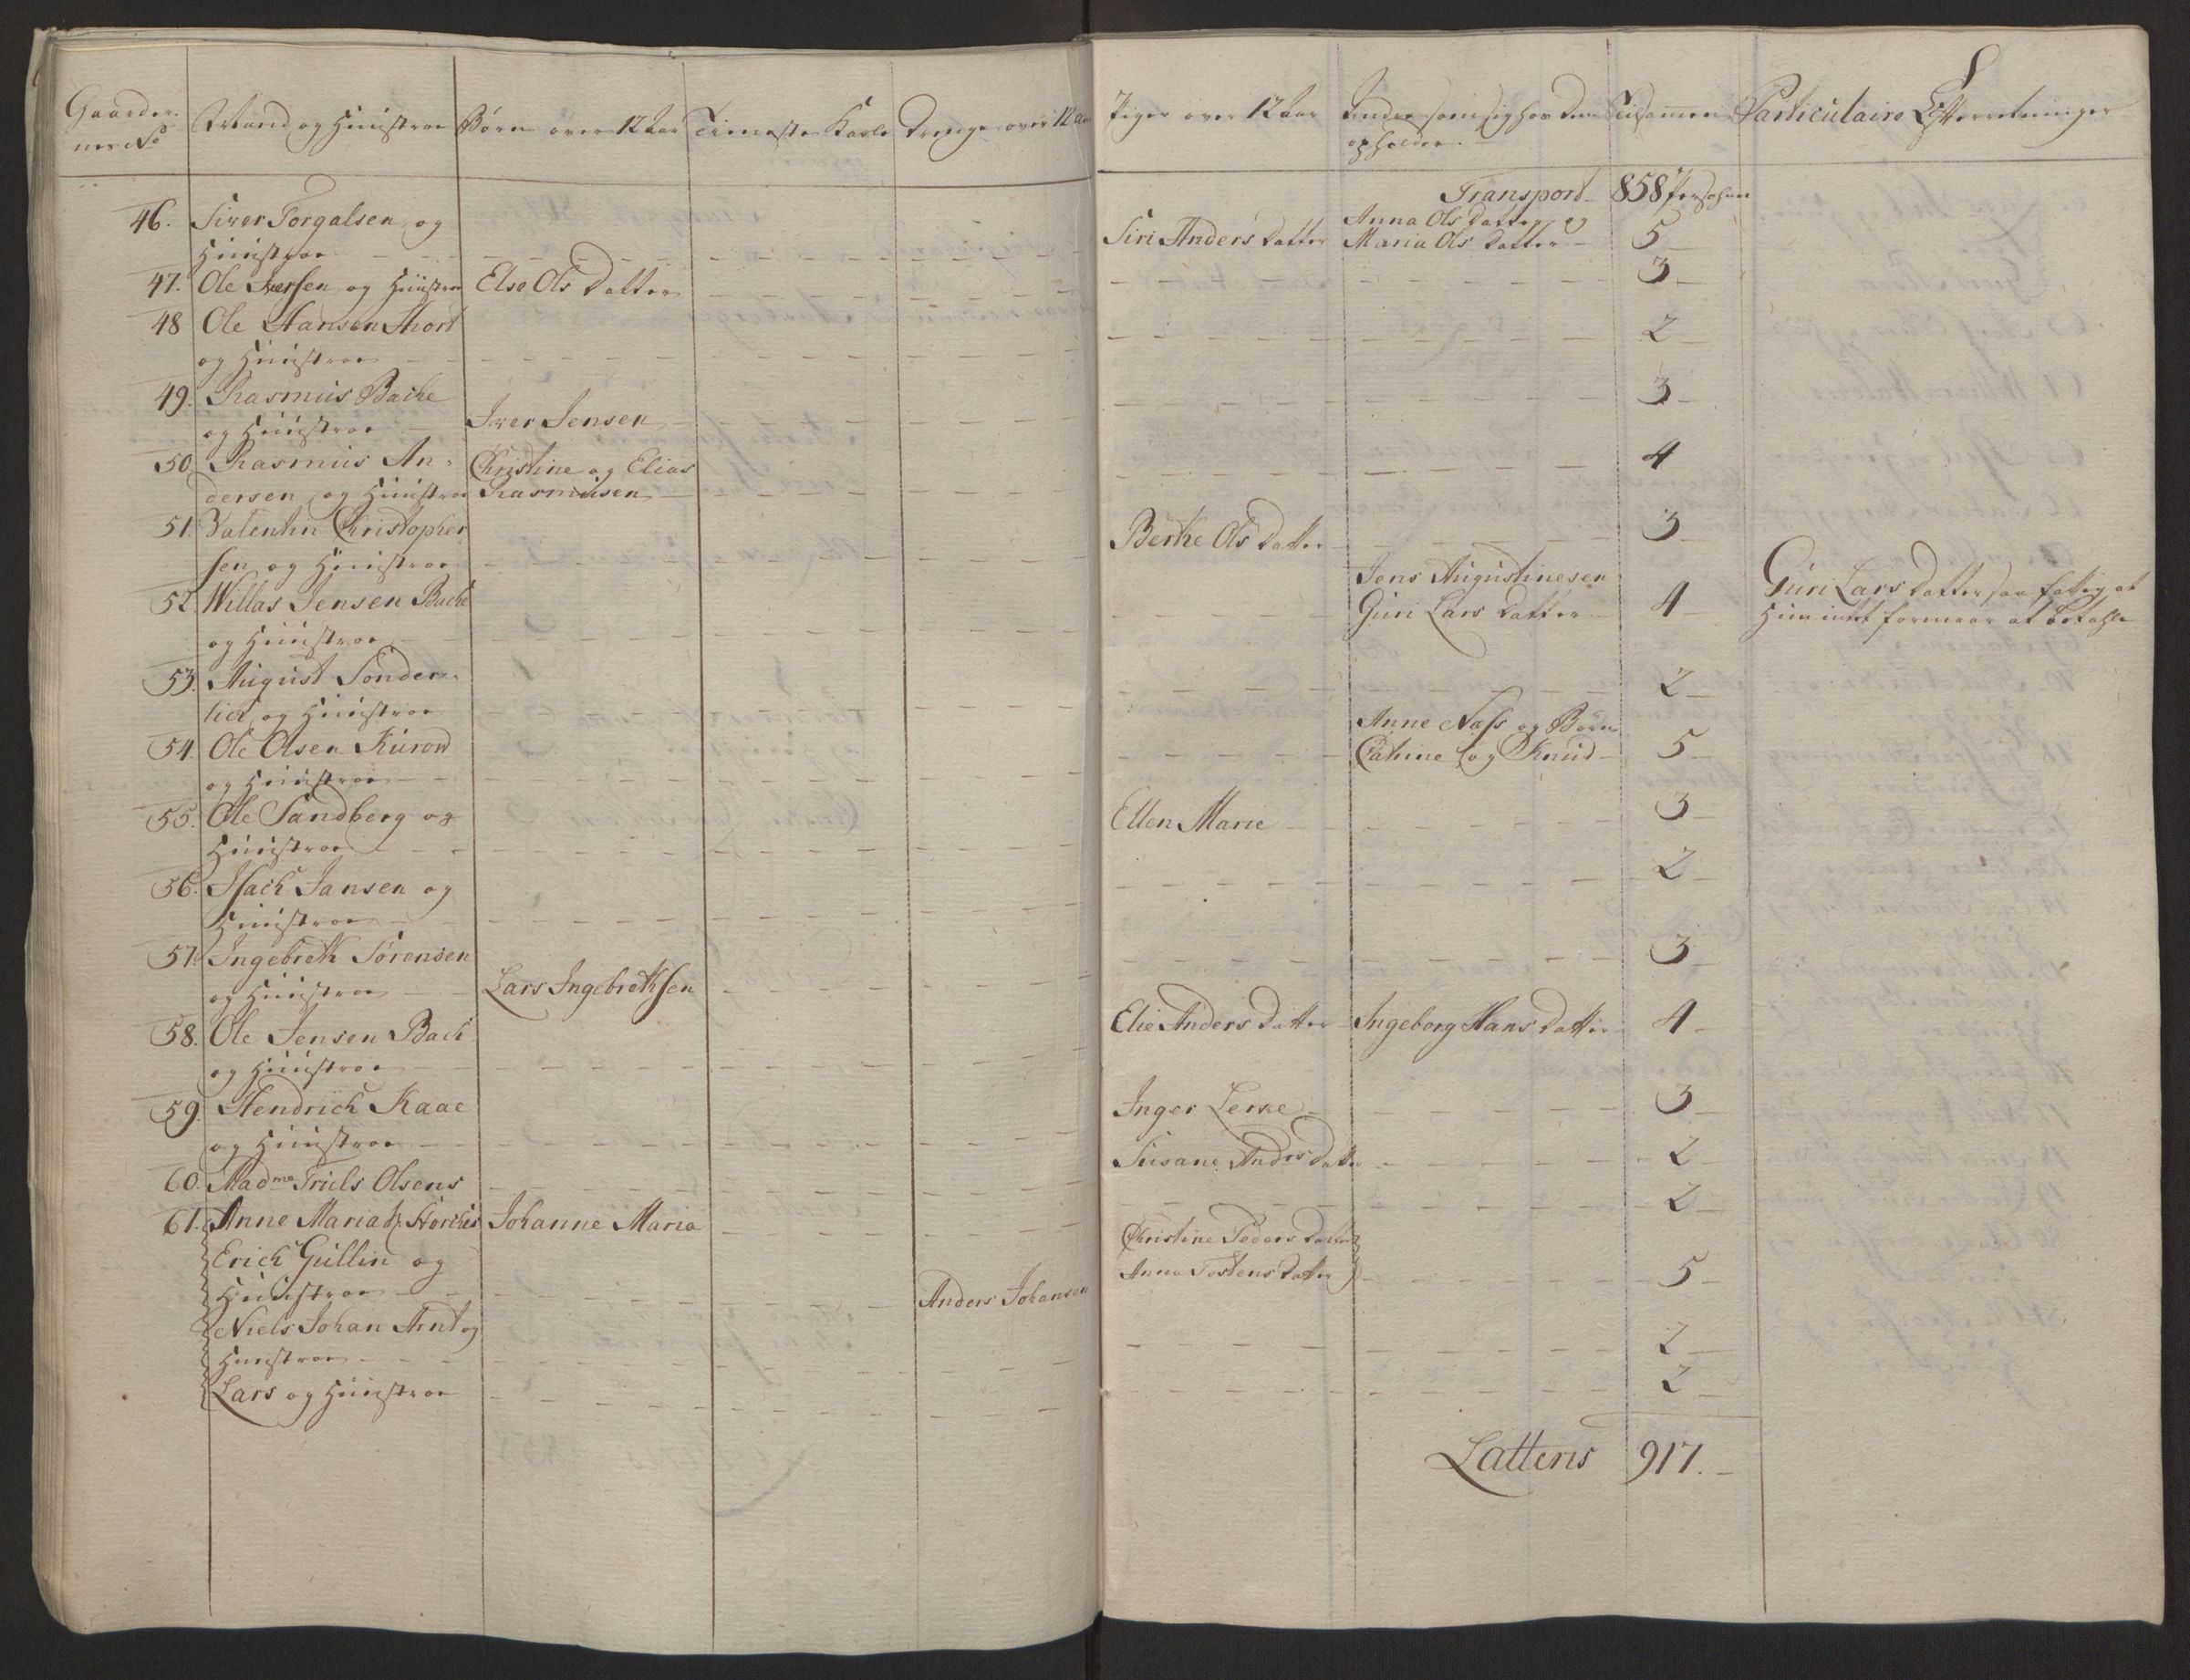 Gaarder-
nes No
Mand og Huustroe
Børn over 12 Aar
Tieneste Karle
Drenge over 12 Aar
Piger over 12 Aar
Andre som sig hos dem
opholder.
Tilsammen
Particulaire Efterretninger
Transport 858 Persohner
46. Siver Torgalsen og
Huustroe
Siri Anders Datter
Anna Ols Datter og
Maria Ols Datter
5
47. Ole Iversen og Huustroe
Else Ols Datter
3
48 Ole Hansen Thord
og Huustroe
2
49. Rasmus Bache
og Huustroe
Iver Jensen
3
50. Rasmus An-
dersen og Huustroe
Christine og Elias
Rasmusen
4
51. Valentin Christopher
sen og Huustroe
Berthe Ols Datter
3
52. Willas Jensen Bache
og Huustroe
Jens Augustinesen
Guri Lars Datter
4
Guri Lars Datter saa fattig at
Hun intet formaar at betahle
53. August Sonder-
lich og Huustroe
2
54. Ole Olsen Kurow
og Huustroe
Anne Nass og Børn
Cathine og Knud
5
55. Ole Sandberg og
Huustroe
Ellen Marie
3
56. Isach Jansen og
Huustroe
2
57. Ingebreth Sørensen
og Huustroe
Lars Ingebrethsen
3
58. Ole Jensen Bach
og Huustroe
Elie Anders Datter
Ingeborg Hans Datter
4
59. Hendrich Kaae
og Huustroe
Inger Lerke
3
60. Madme Truls Olsens
Susane Anders Datter
2
61. Anne Maria Storches
Johanne Maria
2
Erich Gullin og
Huustroe
Anders Johansen
Christine Peders Datter
Anne Tostens Datter
5
Niels Johan Arnt og
Huustroe
2
Lars og Huustroe
2
Latteris 917.